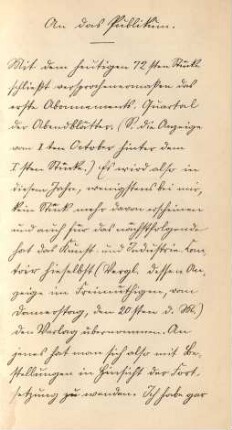 An das Publikum.
Mit dem heutigen 72sten Stück
schließt versprochenermaßen das
erste Abonnements-Quartal
der Abendblätter (S. die Anzeige
vom 1 ten October hinter dem
1sten Stücke.) Es wird also in
diesem Jahr, wenigstens bei mir,
kein Stück mehr davon erscheinen
und auch für das nächstfolgende
hat das Kunst- und Industrie Com-
toir hieselbst (Vergl. dessen An-
zeige im Freimüthigen, vom
Donnerstag, den 20sten d. M.)
den Verlag übernommen. An
jenes hat man sich also mit Be-
stellungen in Hinsicht der Fort-
setzung zu wenden. Ich habe gar